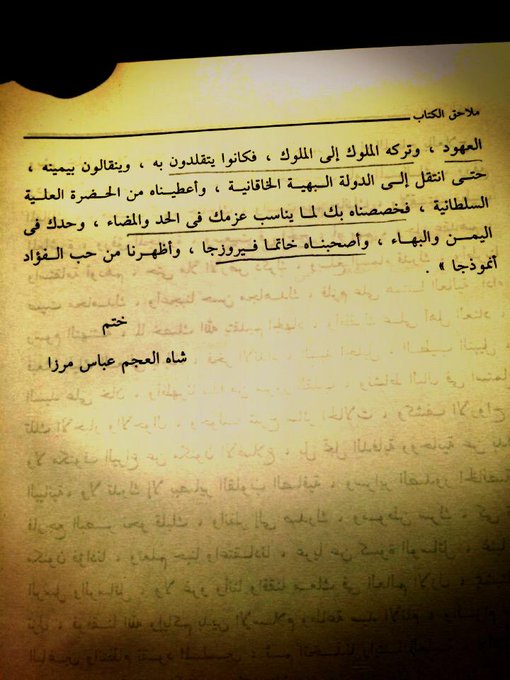 ملاحق الكتاب
العهود ، وتركه الملوك إلى الملوك ، فكانوا يتقلدون به ، وينقالون بيمينه ،
حتى انتقل إلى الدولة البهية الخاقانية ، وأعطيناه من الحضرة العلية
السلطانية ، فخصصناه بك لما يناسب عزمك فى الحد والمضاء ، وحدك فى
اليمن والبهاء ، وأصحبناه خاتما فيروزجا ، وأظهرنا من حب الفؤاد
أنموذجا » .
ختم
شاه العجم عباس مرزا